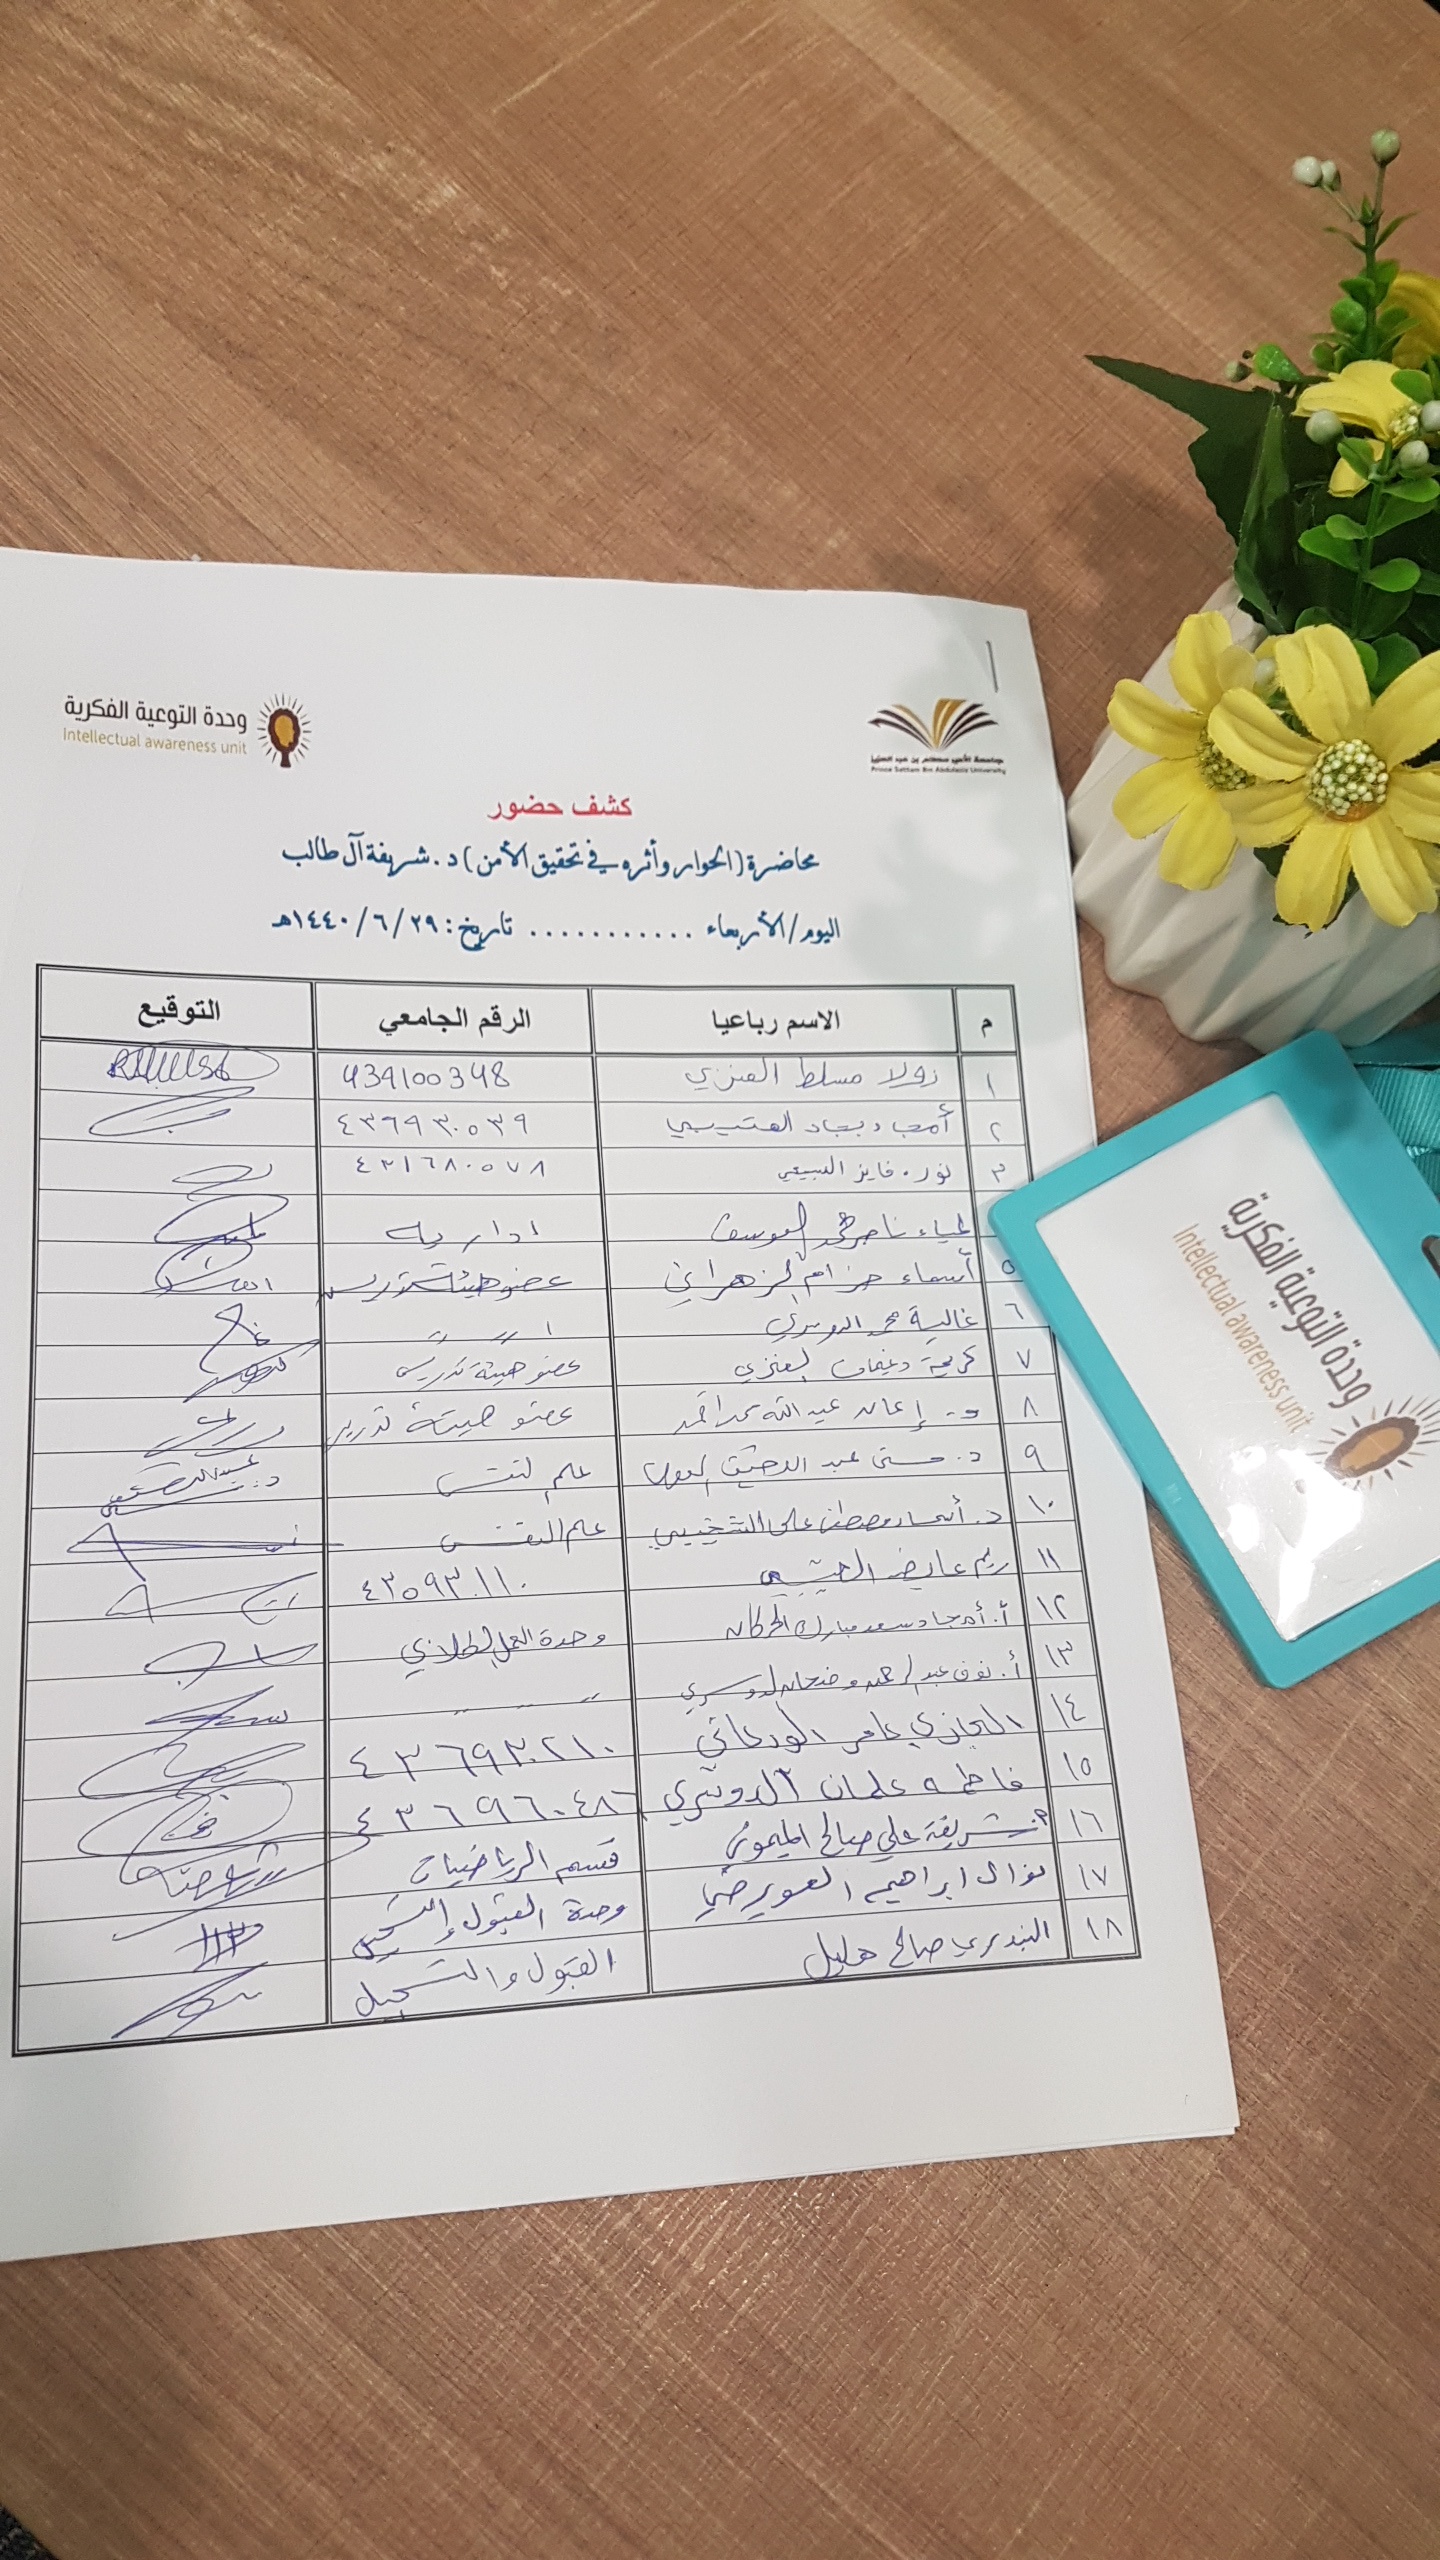 وحدة التوعية الفكرية
Intellectual awareness unit
جامعة الأمير سطام بن عبد العزيز
Prince Sattam Bin Abdulaziz University
كشف حضور
محاضرة (الحوار وأثره في تحقيق الأمن) د. شريفة آل طالب
اليوم/الأربعاء ........... تاريخ: ٢٩/ ٦/ ١٤٤٠هـ
م الاسم رباعيا الرقم الجامعي التوقيع
١ مسلط العنزي 439100348
٢ أمجاد بجاد العتيبي ٤٣٦٩٣٠٥٣٩
٣ نوره فايز السبيعي ٤٣١٦٨٠٥٧٨
لمياء ناصر محمد اليوسف ادارية
٥ أسماء حزام الزهراني عضو هيئة تدريس
٦ غالية محمد الدوسري " " "
٧ كريمة العنزي عضو هيئة تدريس
٨ د. إيمان عبد الله محمد أحمد عضو هيئة تدريس
٩ د. عبد علم النفس
١٠ د. مصطفى علي علم النفس
١١ ريم عايض العتيبي ٤٣٥٩٣٠١١٠
١٢ أ. أمجاد سعد مبارك وحدة العمل الطلابي
١٣ أ. نوف عبدالرحمن الدوسري " " "
١٤ عامر الودعاني ٤٣٦٩٣٠٢١٠
١٥ فاطمه الدوسري ٤٣٦٩٦٠٤٨٦
١٦ شريفة علي صالح الميموني قسم الرياضيات
١٧ نوال ابراهيم العويرضي وحدة القبول والتسجيل
١٨ البندري صالح هليل القبول والتسجيل
وحدة التوعية الفكرية
Intellectual awareness unit